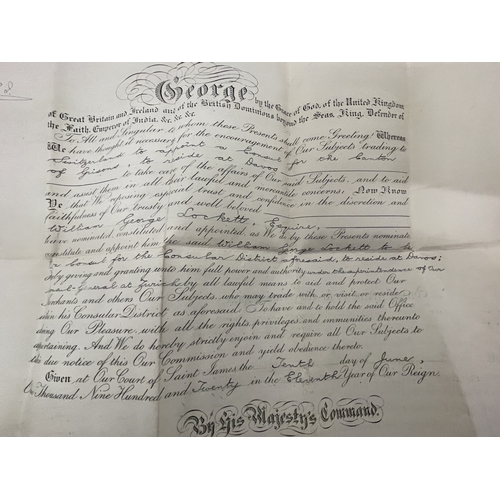 George by the Grace of God, of the United Kingdom
of Great Britain and Ireland and of the British Dominions beyond the Seas, King, Defender of
the Faith, Emperor of India, &c. &c. &c.
To All and Singular to whom these Presents shall come Greeting! Whereas
We have thought it necessary for the encouragement of Our Subjects trading to
Switzerland to appoint a Consul for the Canton
of Grisons, to reside at Davos
to take care of the affairs of Our said Subjects, and to aid
and assist them in all their lawful and mercantile concerns; Now Know
Ye that We reposing especial trust and confidence in the discretion and
faithfulness of Our trusty and well beloved
William George Lockett, Esquire,
have nominated, constituted and appointed, as We do by these Presents nominate
constitute and appoint him the said William George Lockett to be
Consul for the Consular District aforesaid, to reside at Davos;
giving and granting unto him full power and authority under the superintendence of Our
-General at Zurich by all lawful means to aid and protect Our
Merchants and others Our Subjects, who may trade with, or visit, or reside
within his Consular District as aforesaid. To have and to hold the said Office
during Our Pleasure, with all the rights, privileges, and immunities thereunto
appertaining. And We do hereby strictly enjoin and require all Our Subjects to
take due notice of this Our Commission and yield obedience thereto.
Given at Our Court of Saint James the Tenth day of June,
One Thousand Nine Hundred and Twenty in the Eleventh Year of Our Reign.
By His Majesty's Command.